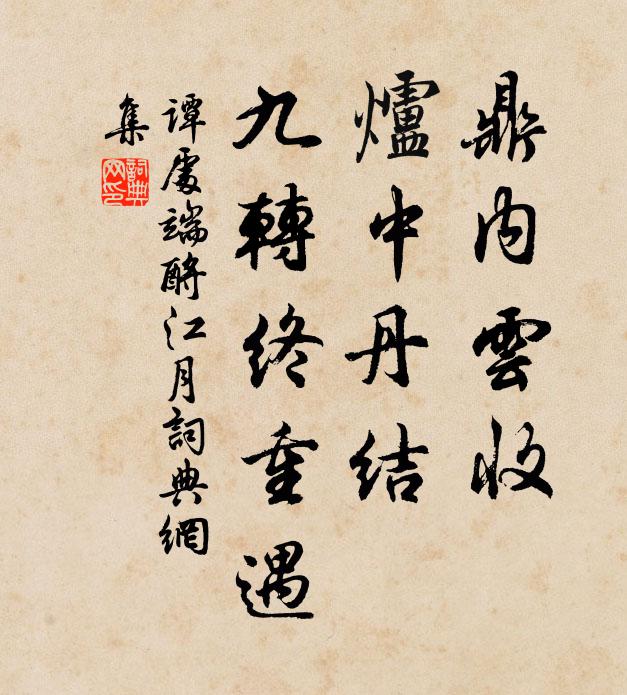 鼎内雲收
爐中丹結
九轉終重遇
譚處端酹江月詞典網
集
詞典網印